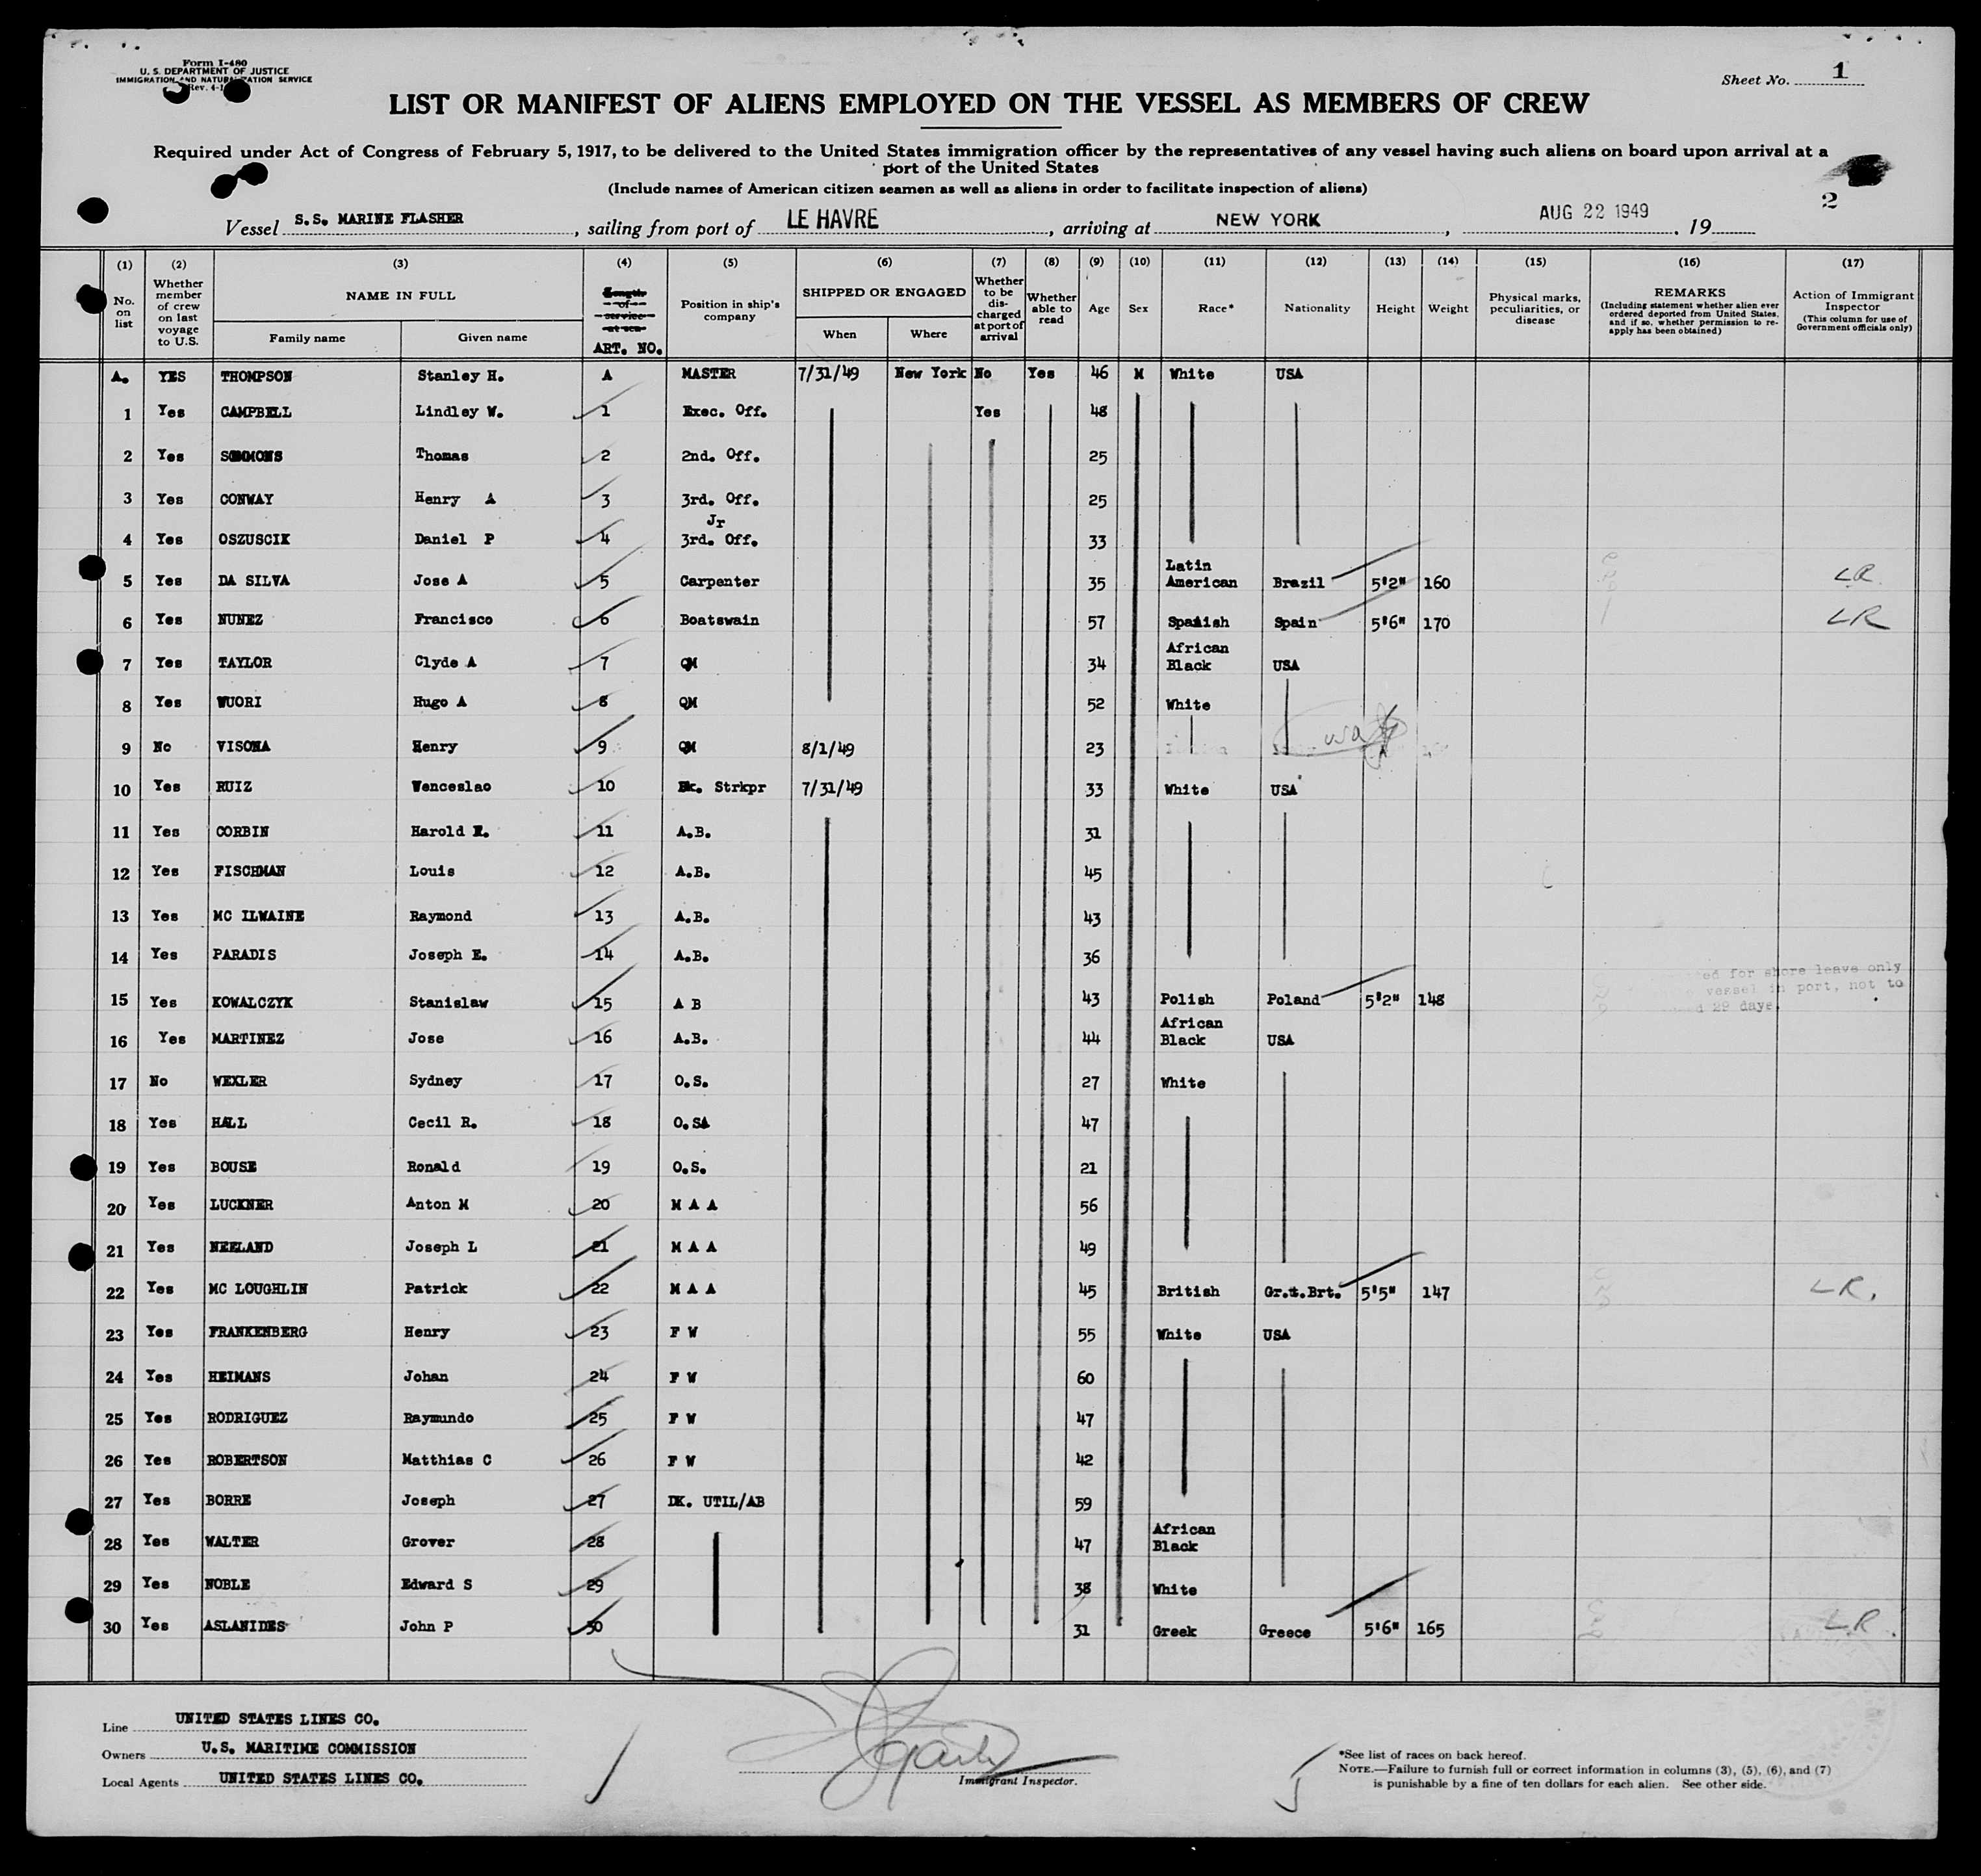 Form I-480
U. S. DEPARTMENT OF JUSTICE
IMMIGRATION AND NATURALIZATION SERVICE
Rev. 4-1
Sheet No. 1
LIST OR MANIFEST OF ALIENS EMPLOYED ON THE VESSEL AS MEMBERS OF CREW
Required under Act of Congress of February 5, 1917, to be delivered to the United States immigration officer by the representatives of any vessel having such aliens on board upon arrival at a
port of the United States
(Include names of American citizen seamen as well as aliens in order to facilitate inspection of aliens)
2
Vessel S.S. MARINE FLASHER, sailing from port of LE HAVRE, arriving at NEW YORK, AUG 22 1949, 19
(1) (2) (3) (4) (5) (6) (7) (8) (9) (10) (11) (12) (13) (14) (15) (16) (17)
No. on list
Whether member of crew on last voyage to U.S.
NAME IN FULL
Family name Given name
Length of service at sea
ART. NO.
Position in ship's company
SHIPPED OR ENGAGED
When Where
Whether to be discharged at port of arrival
Whether able to read
Age
Sex
Race*
Nationality
Height
Weight
Physical marks, peculiarities, or disease
REMARKS
(Including statement whether alien ever ordered deported from United States, and if so, whether permission to reapply has been obtained)
Action of Immigrant Inspector
(This column for use of Government officials only)
A. YES THOMPSON Stanley H. A MASTER 7/31/49 New York No Yes 46 M White USA
1 Yes CAMPBELL Lindley W. 1 Exec. Off. Yes 48
2 Yes SOMMONS Thomas 2 2nd. Off. 25
3 Yes CONWAY Henry A 3 3rd. Off. 25
4 Yes OSZUSCIK Daniel P 4 Jr 3rd. Off. 33
5 Yes DA SILVA Jose A 5 Carpenter 35 Latin American Brazil 5'2" 160 LR
6 Yes NUNEZ Francisco 6 Boatswain 57 Spanish Spain 5'6" 170 LR
7 Yes TAYLOR Clyde A 7 QM 34 African Black USA
8 Yes WUORI Hugo A 8 QM 52 White
9 No VISONA Henry 9 QM 8/1/49 23 USA
10 Yes RUIZ Wenceslao 10 Dk. Strkpr 7/31/49 33 White USA
11 Yes CORBIN Harold E. 11 A.B. 31
12 Yes FISCHMAN Louis 12 A.B. 45
13 Yes MC ILWAINE Raymond 13 A.B. 43
14 Yes PARADIS Joseph E. 14 A.B. 36
15 Yes KOWALCZYK Stanislaw 15 A B 43 Polish Poland 5'2" 148 for shore leave only
vessel in port, not to
29 days.
16 Yes MARTINEZ Jose 16 A.B. 44 African Black USA
17 No WEXLER Sydney 17 O.S. 27 White
18 Yes HALL Cecil R. 18 O.SA 47
19 Yes BOUSE Ronald 19 O.S. 21
20 Yes LUCKNER Anton M 20 M A A 56
21 Yes NEELAND Joseph L 21 M A A 49
22 Yes MC LOUGHLIN Patrick 22 M A A 45 British Gr.t.Brt. 5'5" 147 LR.
23 Yes FRANKENBERG Henry 23 F W 55 White USA
24 Yes HEIMANS Johan 24 F W 60
25 Yes RODRIGUEZ Raymundo 25 F W 47
26 Yes ROBERTSON Matthias C 26 F W 42
27 Yes BORRE Joseph 27 DK. UTIL/AB 59
28 Yes WALTER Grover 28 47 African Black
29 Yes NOBLE Edward S 29 38 White
30 Yes ASLANIDES John P 30 31 Greek Greece 5'6" 165 LR.
Line UNITED STATES LINES CO.
Owners U.S. MARITIME COMMISSION
Local Agents UNITED STATES LINES CO.
Immigrant Inspector.
*See list of races on back hereof.
NOTE.—Failure to furnish full or correct information in columns (3), (5), (6), and (7)
is punishable by a fine of ten dollars for each alien. See other side.